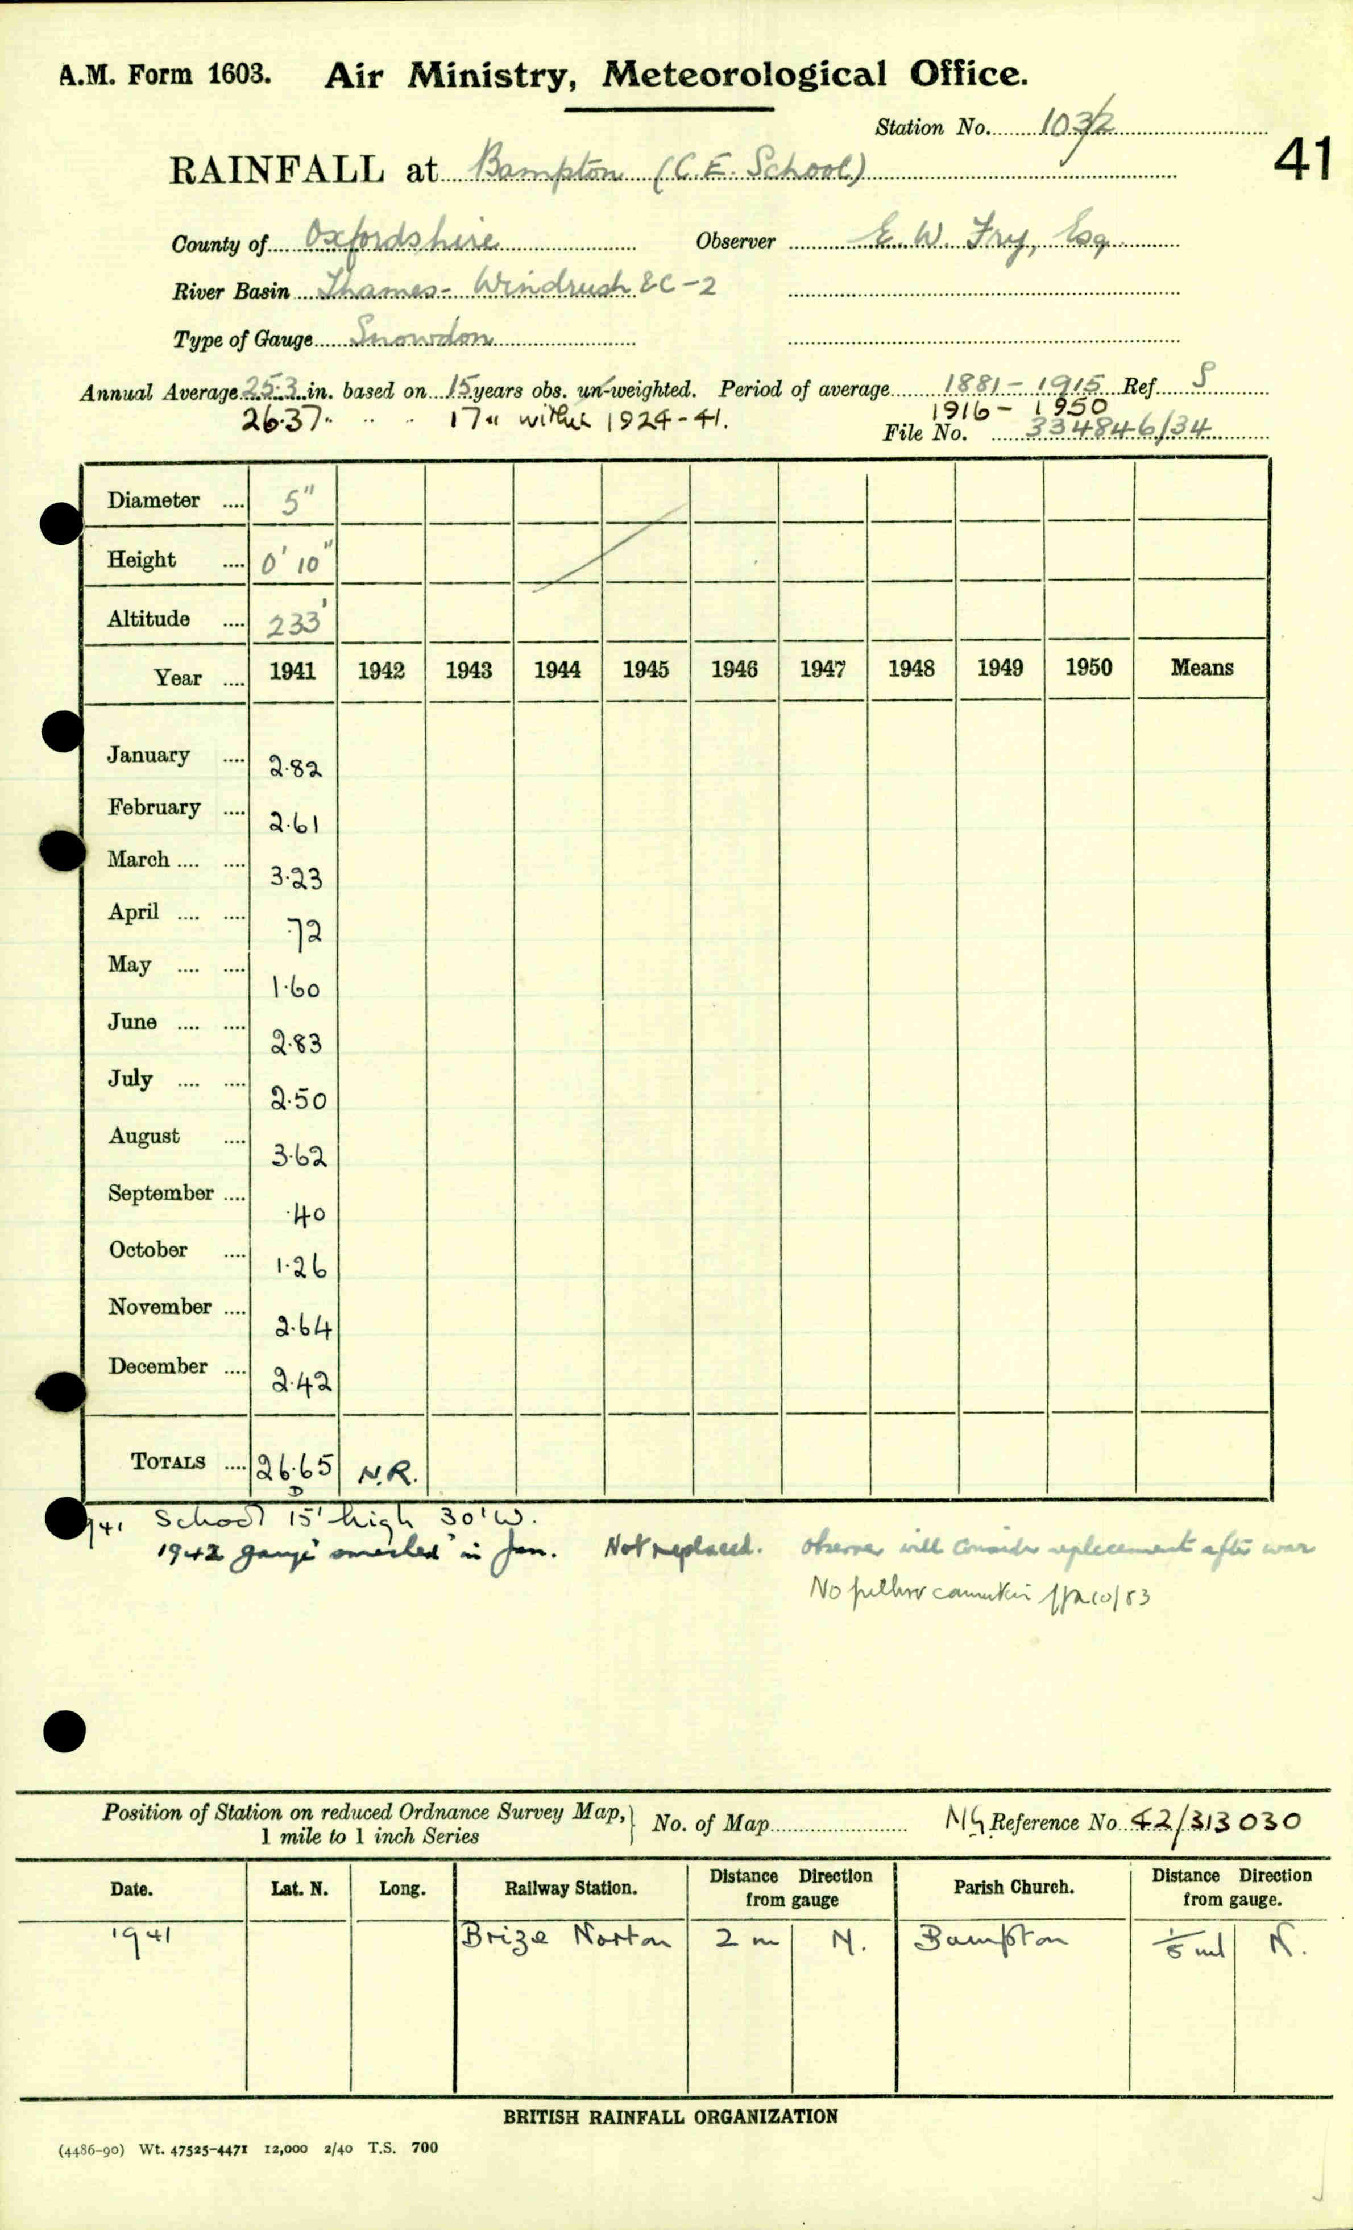 A.M. Form 1603. Air Ministry, Meteorological Office.
Station No. 103/2
41
RAINFALL at Bampton (C.E. School)
County of Oxfordshire Observer E. W. Fry, Esq
River Basin Thames - Windrush &C - 2
Type of Gauge Snowdon
Annual Average 25.3 in. based on 15 years obs. un-weighted. Period of average 1881 - 1915 Ref. S
26.37 " " " 17 " within 1924-41. 1916 - 1950
File No. 334846/34
Diameter .... 5"
Height .... 0' 10"
Altitude .... 233'
Year .... 1941 1942 1943 1944 1945 1946 1947 1948 1949 1950 Means
January .... 2.82
February .... 2.61
March .... .... 3.23
April .... .... .72
May .... .... 1.60
June .... .... 2.83
July .... .... 2.50
August .... 3.62
September .... .40
October .... 1.26
November .... 2.64
December .... 2.42
TOTALS .... 26.65 N.R.
D
1941 School 15' high 30' W.
1942 gauge smashed in Jan. Not replaced. Observer will consider replacement after war
No
Position of Station on reduced Ordnance Survey Map, } No. of Map NG Reference No 42/313030
1 mile to 1 inch Series
Date. Lat. N. Long. Railway Station. Distance Direction from gauge Parish Church. Distance Direction from gauge.
1941 Brize Norton 2 m N. Bampton 1/8 ml N.
BRITISH RAINFALL ORGANIZATION
(4486-90) Wt. 47525-4471 12,000 2/40 T.S. 700